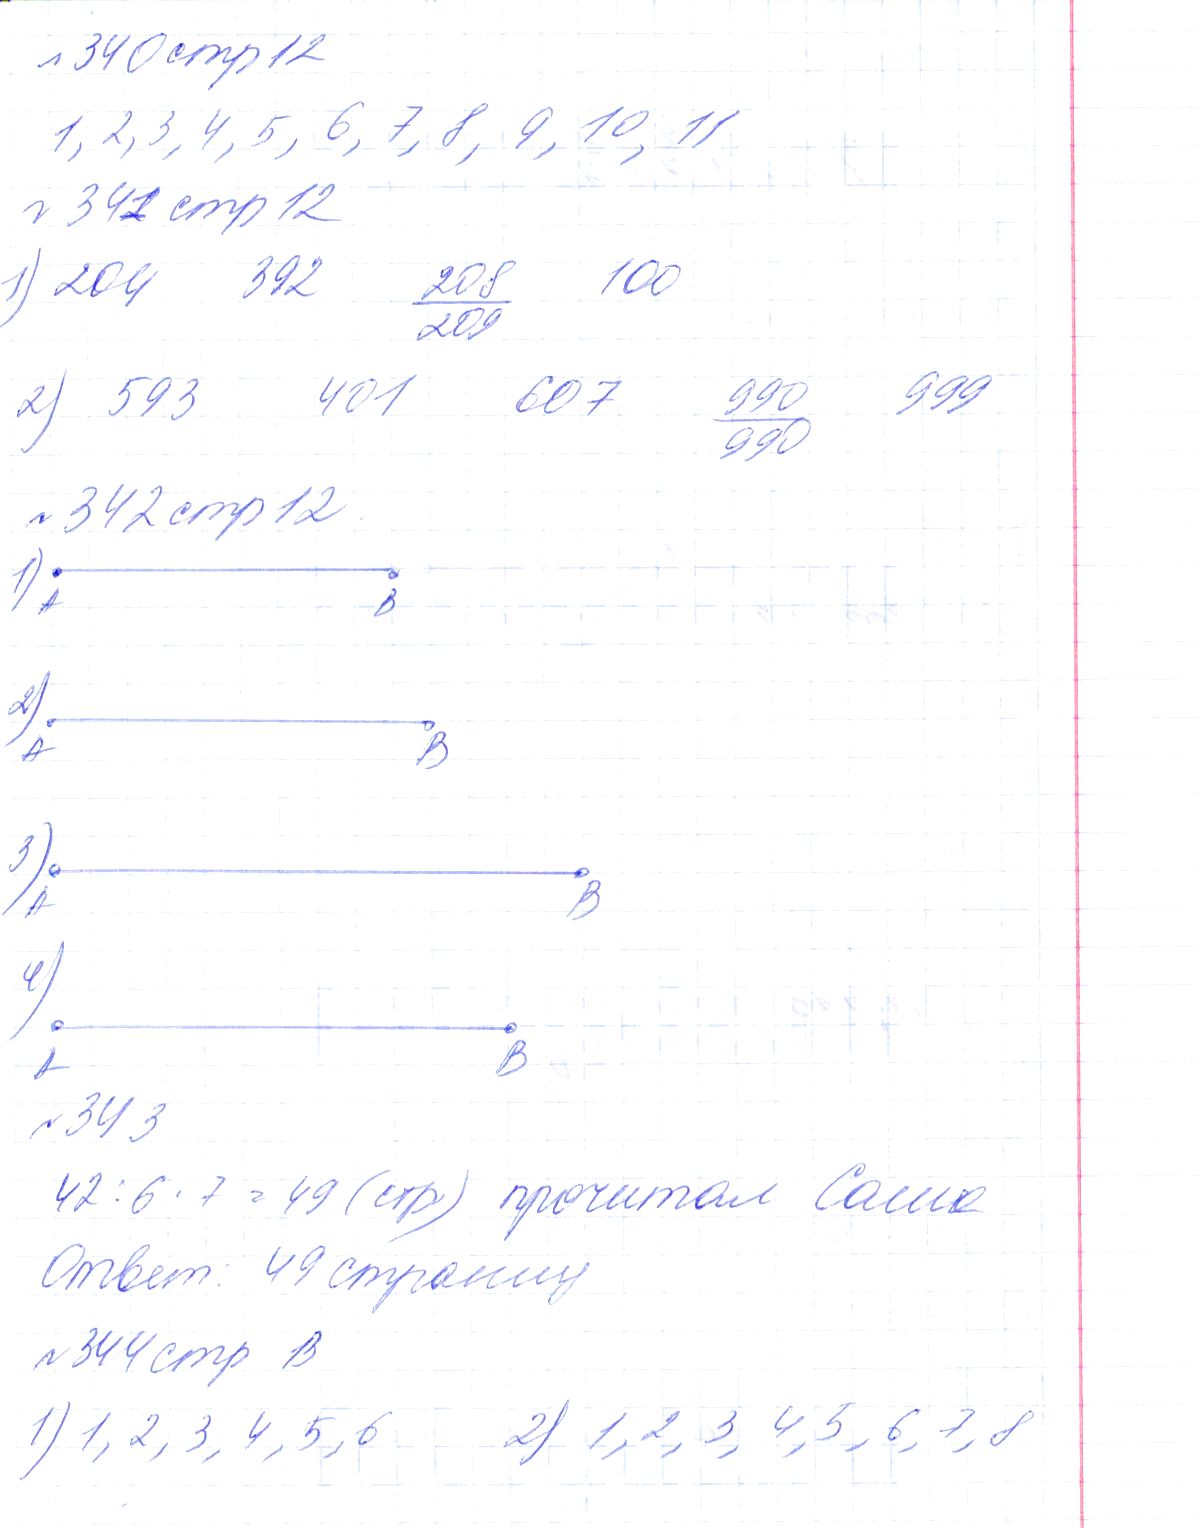 №340 стр 12
1, 2, 3, 4, 5, 6, 7, 8, 9, 10, 11
№341 стр 12
1) 204 392 208/209 100
2) 593 401 607 990/990 999
№342 стр 12
1)
A B
2)
A B
3)
A B
4)
A B
№343
42:6·7=49 (стр) прочитал Саша
Ответ: 49 страниц
№344 стр 13
1) 1, 2, 3, 4, 5, 6 2) 1, 2, 3, 4, 5, 6, 7, 8